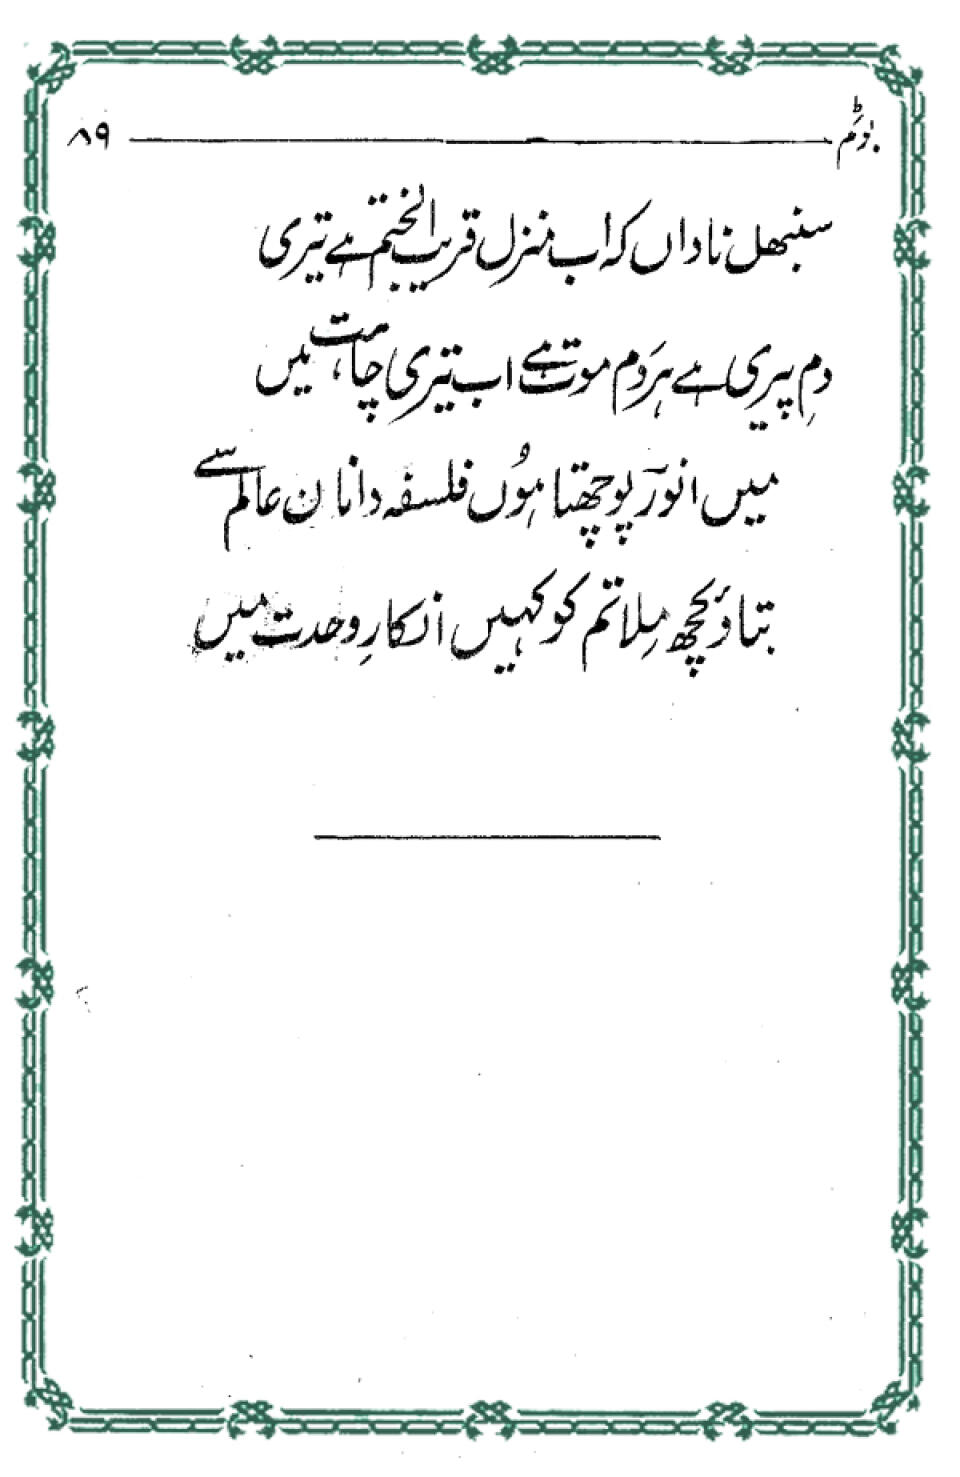 ۸۹
سنبھل ناداں کہ اب منزل قریب الختم ہے تیری
دمِ پیری ہے ہر دَم موت ہے اب تیری چاہت میں
میں انورؔ پوچھتا ہُوں فلسفہ دانانِ عالم سے
بتاؤ کچھ مِلا تم کو کہیں انکارِ وحدت میں